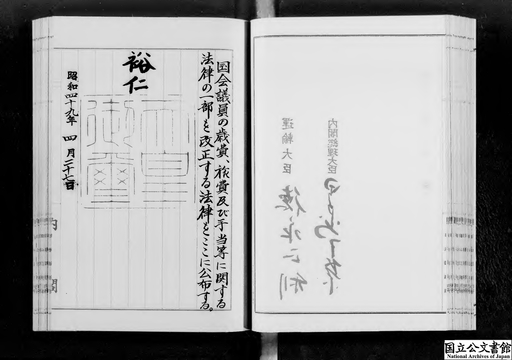 内閣総理大臣
運輸大臣 徳永正利
国会議員の歳費、旅費及び手当等に関する
法律の一部を改正する法律をここに公布する。
裕仁
天皇
御璽
昭和四十九年 四月二十七日
内閣
国立公文書館
National Archives of Japan